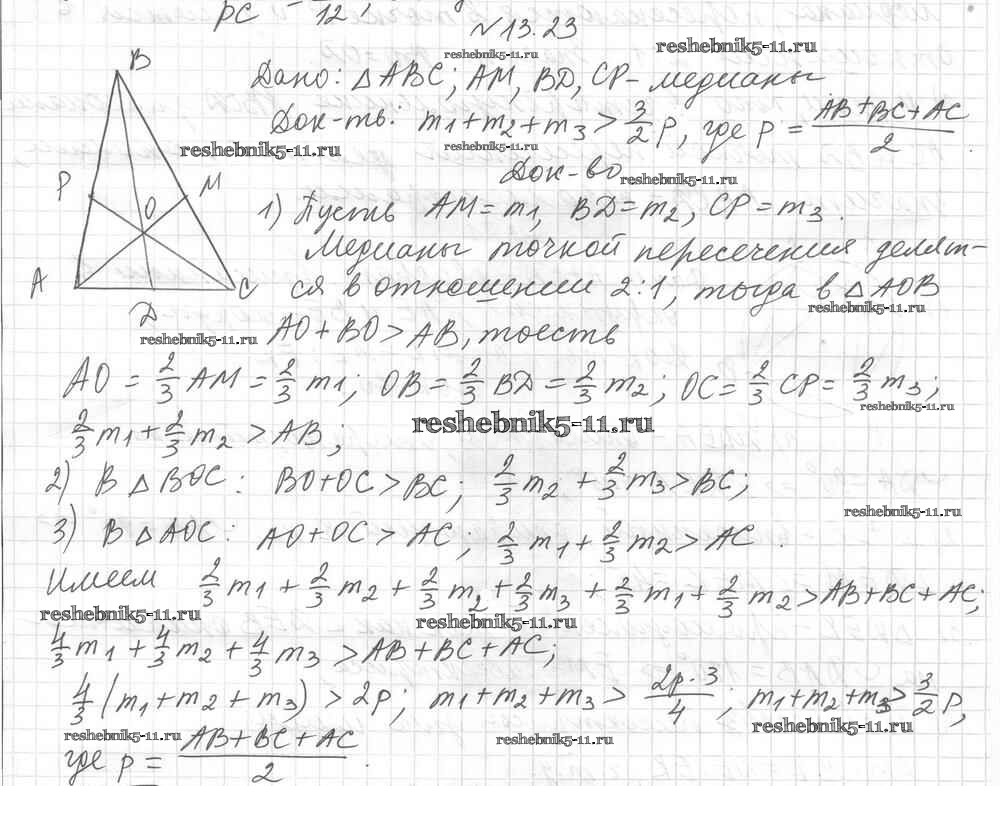 PC = 12,
№13.23
reshebnik5-11.ru
reshebnik5-11.ru
Дано: △ABC; AM, BD, CP - медианы
Док-ть: m1+m2+m3 > 3/2 p, где p = (AB+BC+AC)/2
reshebnik5-11.ru
reshebnik5-11.ru
Док-во
reshebnik5-11.ru
B
P
M
O
A
C
D
1) Пусть AM=m1, BD=m2, CP=m3.
Медианы точкой пересечения делят-
ся в отношении 2:1, тогда в △AOB
reshebnik5-11.ru
reshebnik5-11.ru
AO+BO>AB, тоесть
AO = 2/3 AM = 2/3 m1; OB = 2/3 BD = 2/3 m2; OC = 2/3 CP = 2/3 m3;
reshebnik5-11.ru
reshebnik5-11.ru
2/3 m1 + 2/3 m2 > AB;
2) В △BOC: BO+OC>BC; 2/3 m2 + 2/3 m3 > BC;
reshebnik5-11.ru
3) В △AOC: AO+OC > AC; 2/3 m1 + 2/3 m2 > AC.
Имеем 2/3 m1 + 2/3 m2 + 2/3 m2 + 2/3 m3 + 2/3 m1 + 2/3 m2 > AB+BC+AC;
reshebnik5-11.ru
reshebnik5-11.ru
4/3 m1 + 4/3 m2 + 4/3 m3 > AB+BC+AC;
4/3 (m1+m2+m3) > 2p; m1+m2+m3 > (2p·3)/4; m1+m2+m3 > 3/2 p,
reshebnik5-11.ru
reshebnik5-11.ru
reshebnik5-11.ru
где p = (AB+BC+AC)/2.